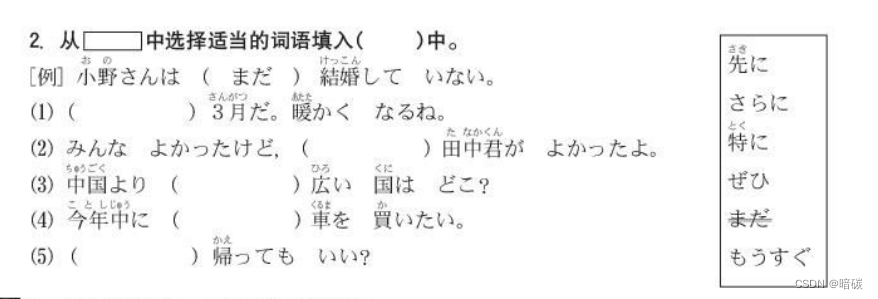 2. 从 中选择适当的词语填入( )中。
[例] 小野さんは ( まだ ) 結婚して いない。
(1) ( ) 3月だ。暖かく なるね。
(2) みんな よかったけど, ( ) 田中君が よかったよ。
(3) 中国より ( ) 広い 国は どこ?
(4) 今年中に ( ) 車を 買いたい。
(5) ( ) 帰っても いい?
先に
さらに
特に
ぜひ
まだ
もうすぐ
CSDN @暗碳